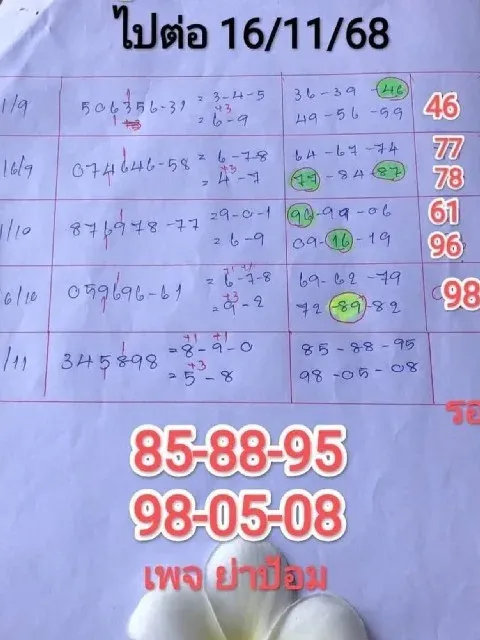 ไปต่อ 16/11/68
1/9 506356-31 = 3-4-5 36-39-46 46
1 +3 = 6-9 49-56-59
16/9 074646-58 = 6-7-8 64-67-74 77
+3 = 4-7 77-84-87 78
1/10 876978-77 = 9-0-1 96-99-06 61
= 6-9 09-16-19 96
6/10 059696-61 = 6-7-8 69-62-79 98
+3 = 9-2 72-89-82
1/11 345898 = 8-9-0 85-88-95
+3 = 5-8 98-05-08
85-88-95
98-05-08
เพจ ย่าป้อม